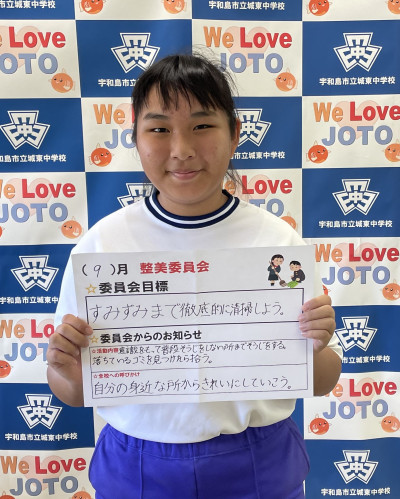 We Love
JOTO
宇和島市立城東中学校
(9)月 整美委員会
☆委員会目標
すみずみまで徹底的に清掃しよう。
☆委員会からのお知らせ
☆活動内容
普段そうじをしない所までそうじをする。
落ちているゴミを見つけたら拾う。
☆全校への呼びかけ
自分の身近な所からきれいにしていこう。